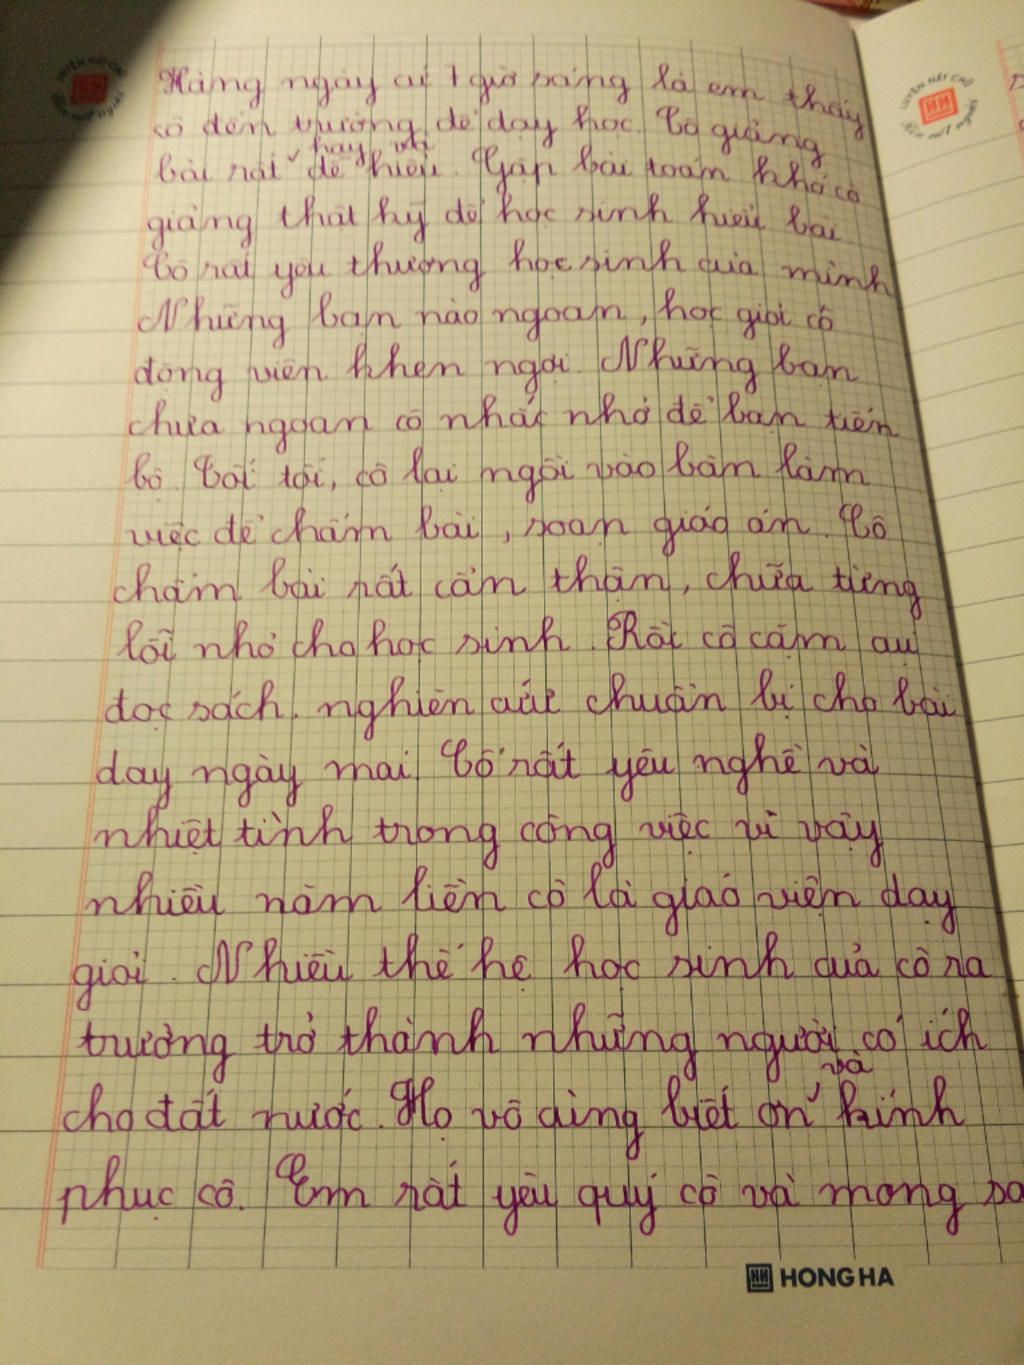 Hàng ngày cứ 7 giờ sáng là em thấy
cô đến trường để dạy học. Cô giảng
bài rất hay và dễ hiểu. Gặp bài toán khó cô
giảng thật kỹ để học sinh hiểu bài
Cô rất yêu thương học sinh của mình
Những bạn nào ngoan, học giỏi cô
động viên khen ngợi. Những bạn
chưa ngoan cô nhắc nhở để bạn tiến
bộ. Tối tối, cô lại ngồi vào bàn làm
việc để chấm bài, soạn giáo án. Cô
chấm bài rất cẩn thận, chữa từng
lỗi nhỏ cho học sinh. Rồi cô cặm cụi
đọc sách, nghiên cứu chuẩn bị cho bài
dạy ngày mai. Cô rất yêu nghề và
nhiệt tình trong công việc vì vậy
nhiều năm liền cô là giáo viên dạy
giỏi. Nhiều thế hệ học sinh của cô ra
trường trở thành những người có ích
cho đất nước. Họ vô cùng biết ơn và kính
phục cô. Em rất yêu quý cô và mong
HONG HA
LUYỆN NÉT CHỮ
RÈN NẾT NGƯỜI